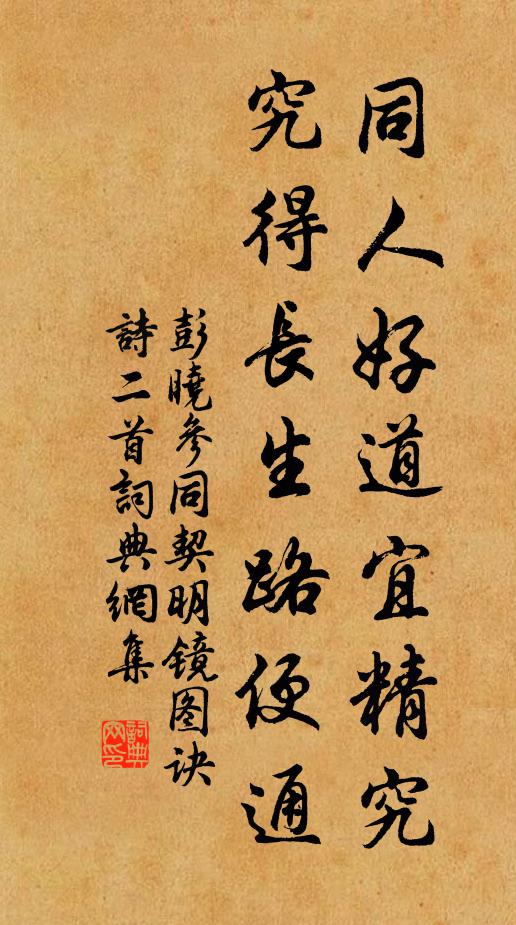 同人好道宜精究
究得長生路便通
彭曉參同契明镜图诀
詩二首詞典網集